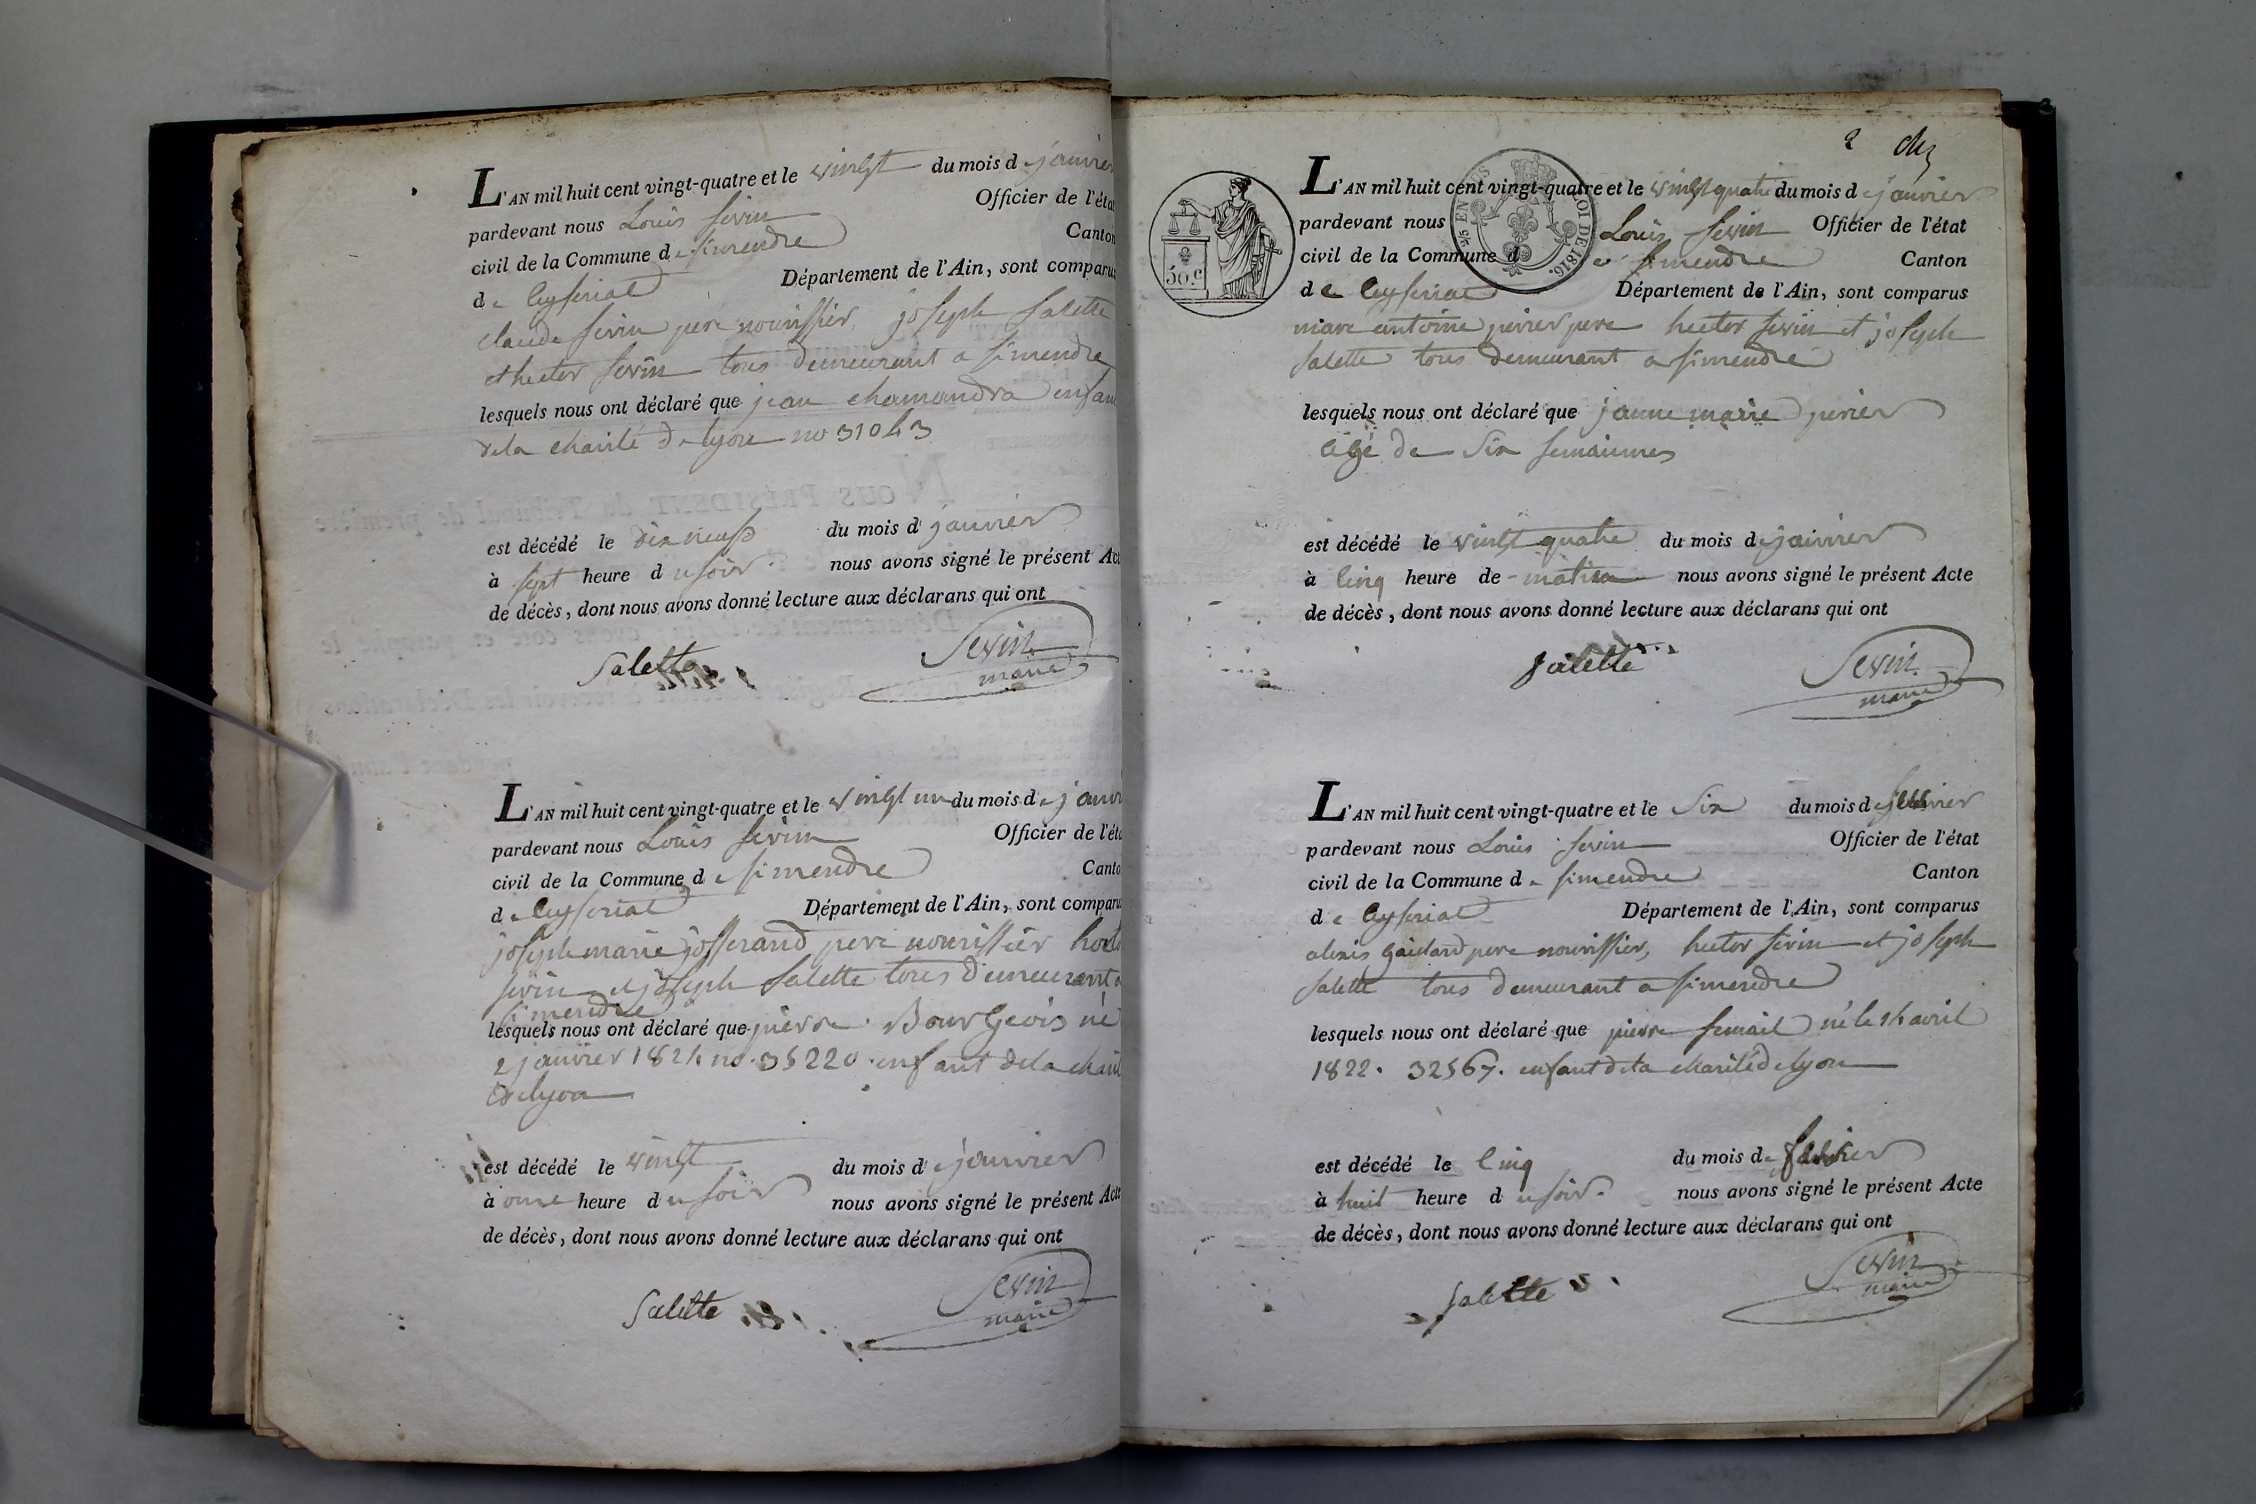 L'AN mil huit cent vingt-quatre et le vingt du mois de janvier
pardevant nous Louis sevin Officier de l'état
civil de la Commune de simendre Canton
de Ceyseriat Département de l'Ain, sont comparus
claude sevin pere nourissier, joseph salette
et hector sevin tous demeurant a simendre
lesquels nous ont déclaré que jean chamandra enfan
de la charité de lyon no 31043
est décédé le dix neuf du mois d janvier
à sept heure du soir. nous avons signé le présent Acte
de décès, dont nous avons donné lecture aux déclarans qui ont
Salette Sevin
maire
L'AN mil huit cent vingt-quatre et le vingt un du mois de janvi
pardevant nous Louis sevin Officier de l'éta
civil de la Commune de simendre Canto
de Ceyseriat Département de l'Ain, sont comparu
joseph marie josserand pere nourissier hect
sevin et joseph salette tous demeurant a
simendre
lesquels nous ont déclaré que pierre Bourgeois né
2 janvier 1824 no. 35220. enfant de la charit
de lyon
est décédé le vingt du mois de janvier
à onze heure du soir nous avons signé le présent Acte
de décès, dont nous avons donné lecture aux déclarans qui ont
Salette Sevin
maire
2
L'AN mil huit cent vingt-quatre et le vingt quatre du mois de janvier
pardevant nous Louis sevin Officier de l'état
civil de la Commune de simendre Canton
de Ceyseriat Département de l'Ain, sont comparus
50 c
LOI DE 1816.
marc antoine perier pere hector sevin et joseph
salette tous demeurant a simendre
lesquels nous ont déclaré que janne marie perier
âgé de six semaiennes
est décédé le vingt quatre du mois de janvier
à cinq heure de matin nous avons signé le présent Acte
de décès, dont nous avons donné lecture aux déclarans qui ont
Salette Sevin
maire
L'AN mil huit cent vingt-quatre et le six du mois de fevrier
pardevant nous Louis sevin Officier de l'état
civil de la Commune de simendre Canton
de Ceyseriat Département de l'Ain, sont comparus
alexis gaidard pere nourissier, hector sevin et joseph
salette tous demeurant a simendre
lesquels nous ont déclaré que pierre semail né le 14 avril
1822. 32567. enfant de la charité de lyon
est décédé le cinq du mois de fevrier
à huit heure du soir. nous avons signé le présent Acte
de décès, dont nous avons donné lecture aux déclarans qui ont
Salette Sevin
maire